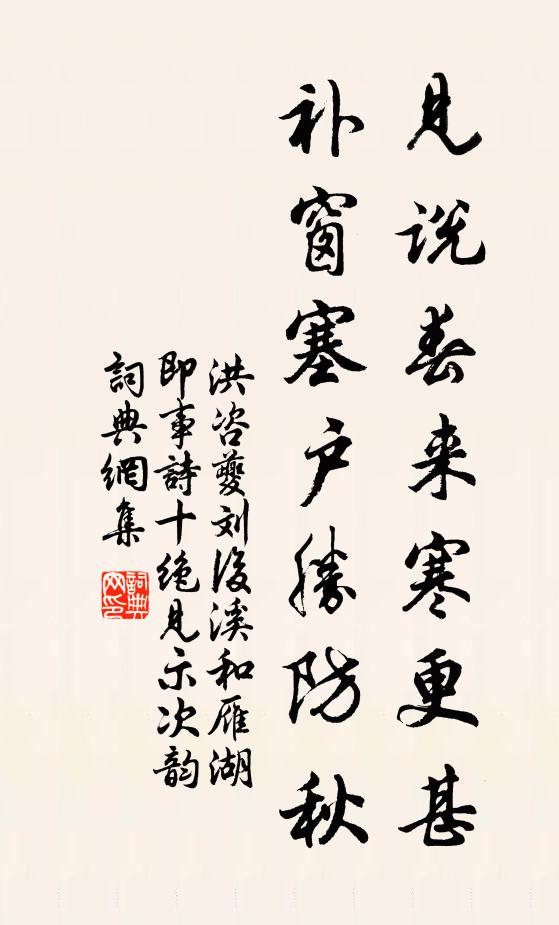 见说春来寒更甚
补窗塞户胜防秋
洪咨夔刘后溪和雁湖
即事詩十绝见示次韵
詞典網集
詞典网印